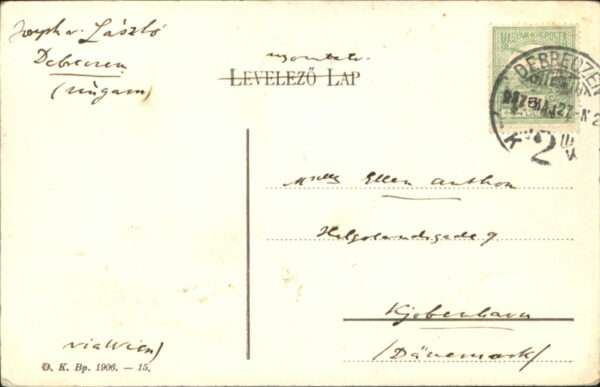 Joseph v. László
Debreczen
(Ungarn)
nyomtatv.
LEVELEZŐ LAP
MAGYAR KIR. POSTA
DEBRECZEN
907 MAJ 27
2
Mlle Ellen Anthon
Helgolandsgade 9
Kjobenhavn
(Dänemark)
via Wien)
D. K. Bp. 1906. — 15.